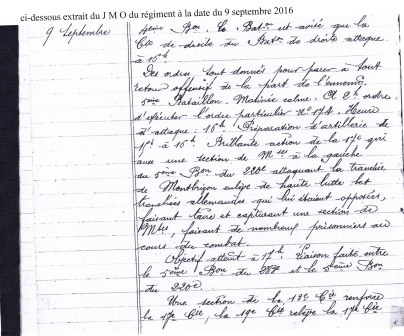 ci-dessous extrait du J M O du régiment à la date du 9 septembre 2016
9 Septembre
4ème Bon. Le Baton est avisé que la
Cie de droite du Baton de droite attaque
à 15h
Des ordres sont donnés pour parer à tout
retour offensif de la part de l'ennemi
5ème Bataillon. Matinée calme. A 2h ordre
d'exécuter l'ordre particulier N° 174. Heure
d'attaque : 16h Préparation d'artillerie de
à 16h. Brillante action de la 17e qui
avec une section de Mses à la gauche
du 5ème Bon du 230e attaquant la tranchée
de Montbrizon enlève de haute lutte les
tranchées allemandes qui lui étaient opposées,
faisant taire et capturant une section de
Mses, faisant de nombreux prisonniers au
cours du combat.
Objectif atteint à 17h. Liaison faite entre
le 5ème Bon du 289e et le 5ème Bon
du 230e
Une section de la 18e Cie renforce
la 17e Cie, la 19e Cie relève la 17e Cie